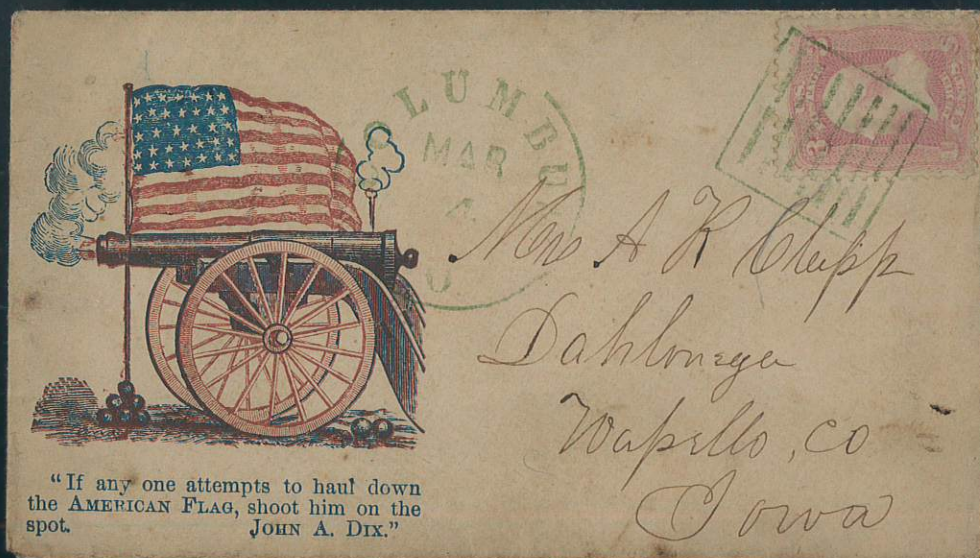 COLUMBUS
MAR
4
O
Mrs A K Clapp
Dahlonega
Wapello, Co
Iowa
"If any one attempts to haul down
the AMERICAN FLAG, shoot him on the
spot. JOHN A. DIX."